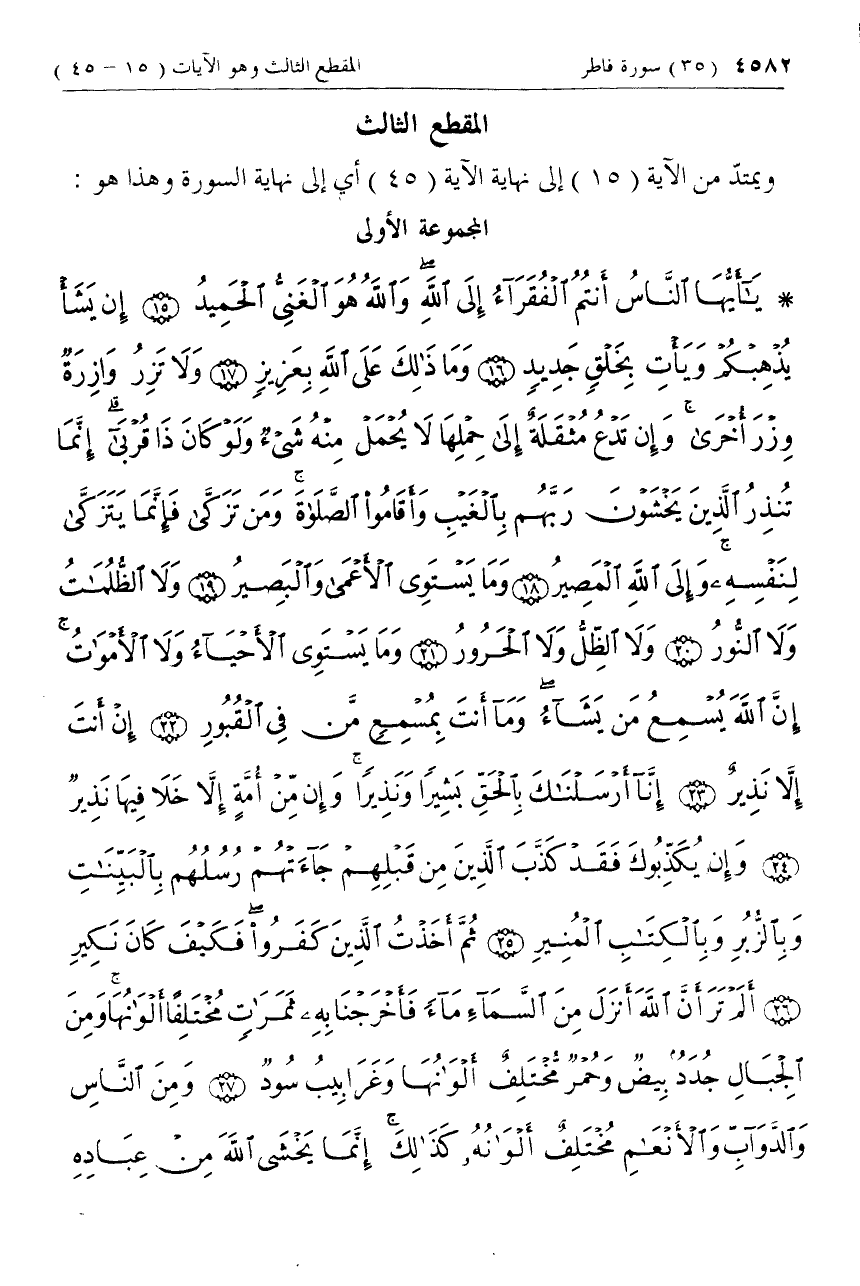 ٤٥٨٢ (٣٥) سورة فاطر المقطع الثالث وهو الآيات (١٥ - ٤٥)
المقطع الثالث
ويمتدّ من الآية (١٥) إلى نهاية الآية (٤٥) أي إلى نهاية السورة وهذا هو :
المجموعة الأولى
* يَـٰٓأَيُّهَا ٱلنَّاسُ أَنتُمُ ٱلْفُقَرَآءُ إِلَى ٱللَّهِ ۖ وَٱللَّهُ هُوَ ٱلْغَنِىُّ ٱلْحَمِيدُ ۝١٥ إِن يَشَأْ
يُذْهِبْكُمْ وَيَأْتِ بِخَلْقٍ جَدِيدٍ ۝١٦ وَمَا ذَٰلِكَ عَلَى ٱللَّهِ بِعَزِيزٍ ۝١٧ وَلَا تَزِرُ وَازِرَةٌ
وِزْرَ أُخْرَىٰ ۚ وَإِن تَدْعُ مُثْقَلَةٌ إِلَىٰ حِمْلِهَا لَا يُحْمَلْ مِنْهُ شَىْءٌ وَلَوْ كَانَ ذَا قُرْبَىٰٓ ۗ إِنَّمَا
تُنذِرُ ٱلَّذِينَ يَخْشَوْنَ رَبَّهُم بِٱلْغَيْبِ وَأَقَامُوا۟ ٱلصَّلَوٰةَ ۚ وَمَن تَزَكَّىٰ فَإِنَّمَا يَتَزَكَّىٰ
لِنَفْسِهِۦ ۚ وَإِلَى ٱللَّهِ ٱلْمَصِيرُ ۝١٨ وَمَا يَسْتَوِى ٱلْأَعْمَىٰ وَٱلْبَصِيرُ ۝١٩ وَلَا ٱلظُّلُمَـٰتُ
وَلَا ٱلنُّورُ ۝٢٠ وَلَا ٱلظِّلُّ وَلَا ٱلْحَرُورُ ۝٢١ وَمَا يَسْتَوِى ٱلْأَحْيَآءُ وَلَا ٱلْأَمْوَٰتُ ۚ
إِنَّ ٱللَّهَ يُسْمِعُ مَن يَشَآءُ ۖ وَمَآ أَنتَ بِمُسْمِعٍ مَّن فِى ٱلْقُبُورِ ۝٢٢ إِنْ أَنتَ
إِلَّا نَذِيرٌ ۝٢٣ إِنَّآ أَرْسَلْنَـٰكَ بِٱلْحَقِّ بَشِيرًا وَنَذِيرًا ۚ وَإِن مِّنْ أُمَّةٍ إِلَّا خَلَا فِيهَا نَذِيرٌ
۝٢٤ وَإِن يُكَذِّبُوكَ فَقَدْ كَذَّبَ ٱلَّذِينَ مِن قَبْلِهِمْ جَآءَتْهُمْ رُسُلُهُم بِٱلْبَيِّنَـٰتِ
وَبِٱلزُّبُرِ وَبِٱلْكِتَـٰبِ ٱلْمُنِيرِ ۝٢٥ ثُمَّ أَخَذْتُ ٱلَّذِينَ كَفَرُوا۟ ۖ فَكَيْفَ كَانَ نَكِيرِ
۝٢٦ أَلَمْ تَرَ أَنَّ ٱللَّهَ أَنزَلَ مِنَ ٱلسَّمَآءِ مَآءً فَأَخْرَجْنَا بِهِۦ ثَمَرَٰتٍ مُّخْتَلِفًا أَلْوَٰنُهَا ۚ وَمِنَ
ٱلْجِبَالِ جُدَدٌۢ بِيضٌ وَحُمْرٌ مُّخْتَلِفٌ أَلْوَٰنُهَا وَغَرَابِيبُ سُودٌ ۝٢٧ وَمِنَ ٱلنَّاسِ
وَٱلدَّوَآبِّ وَٱلْأَنْعَـٰمِ مُخْتَلِفٌ أَلْوَٰنُهُۥ كَذَٰلِكَ ۗ إِنَّمَا يَخْشَى ٱللَّهَ مِنْ عِبَادِهِ